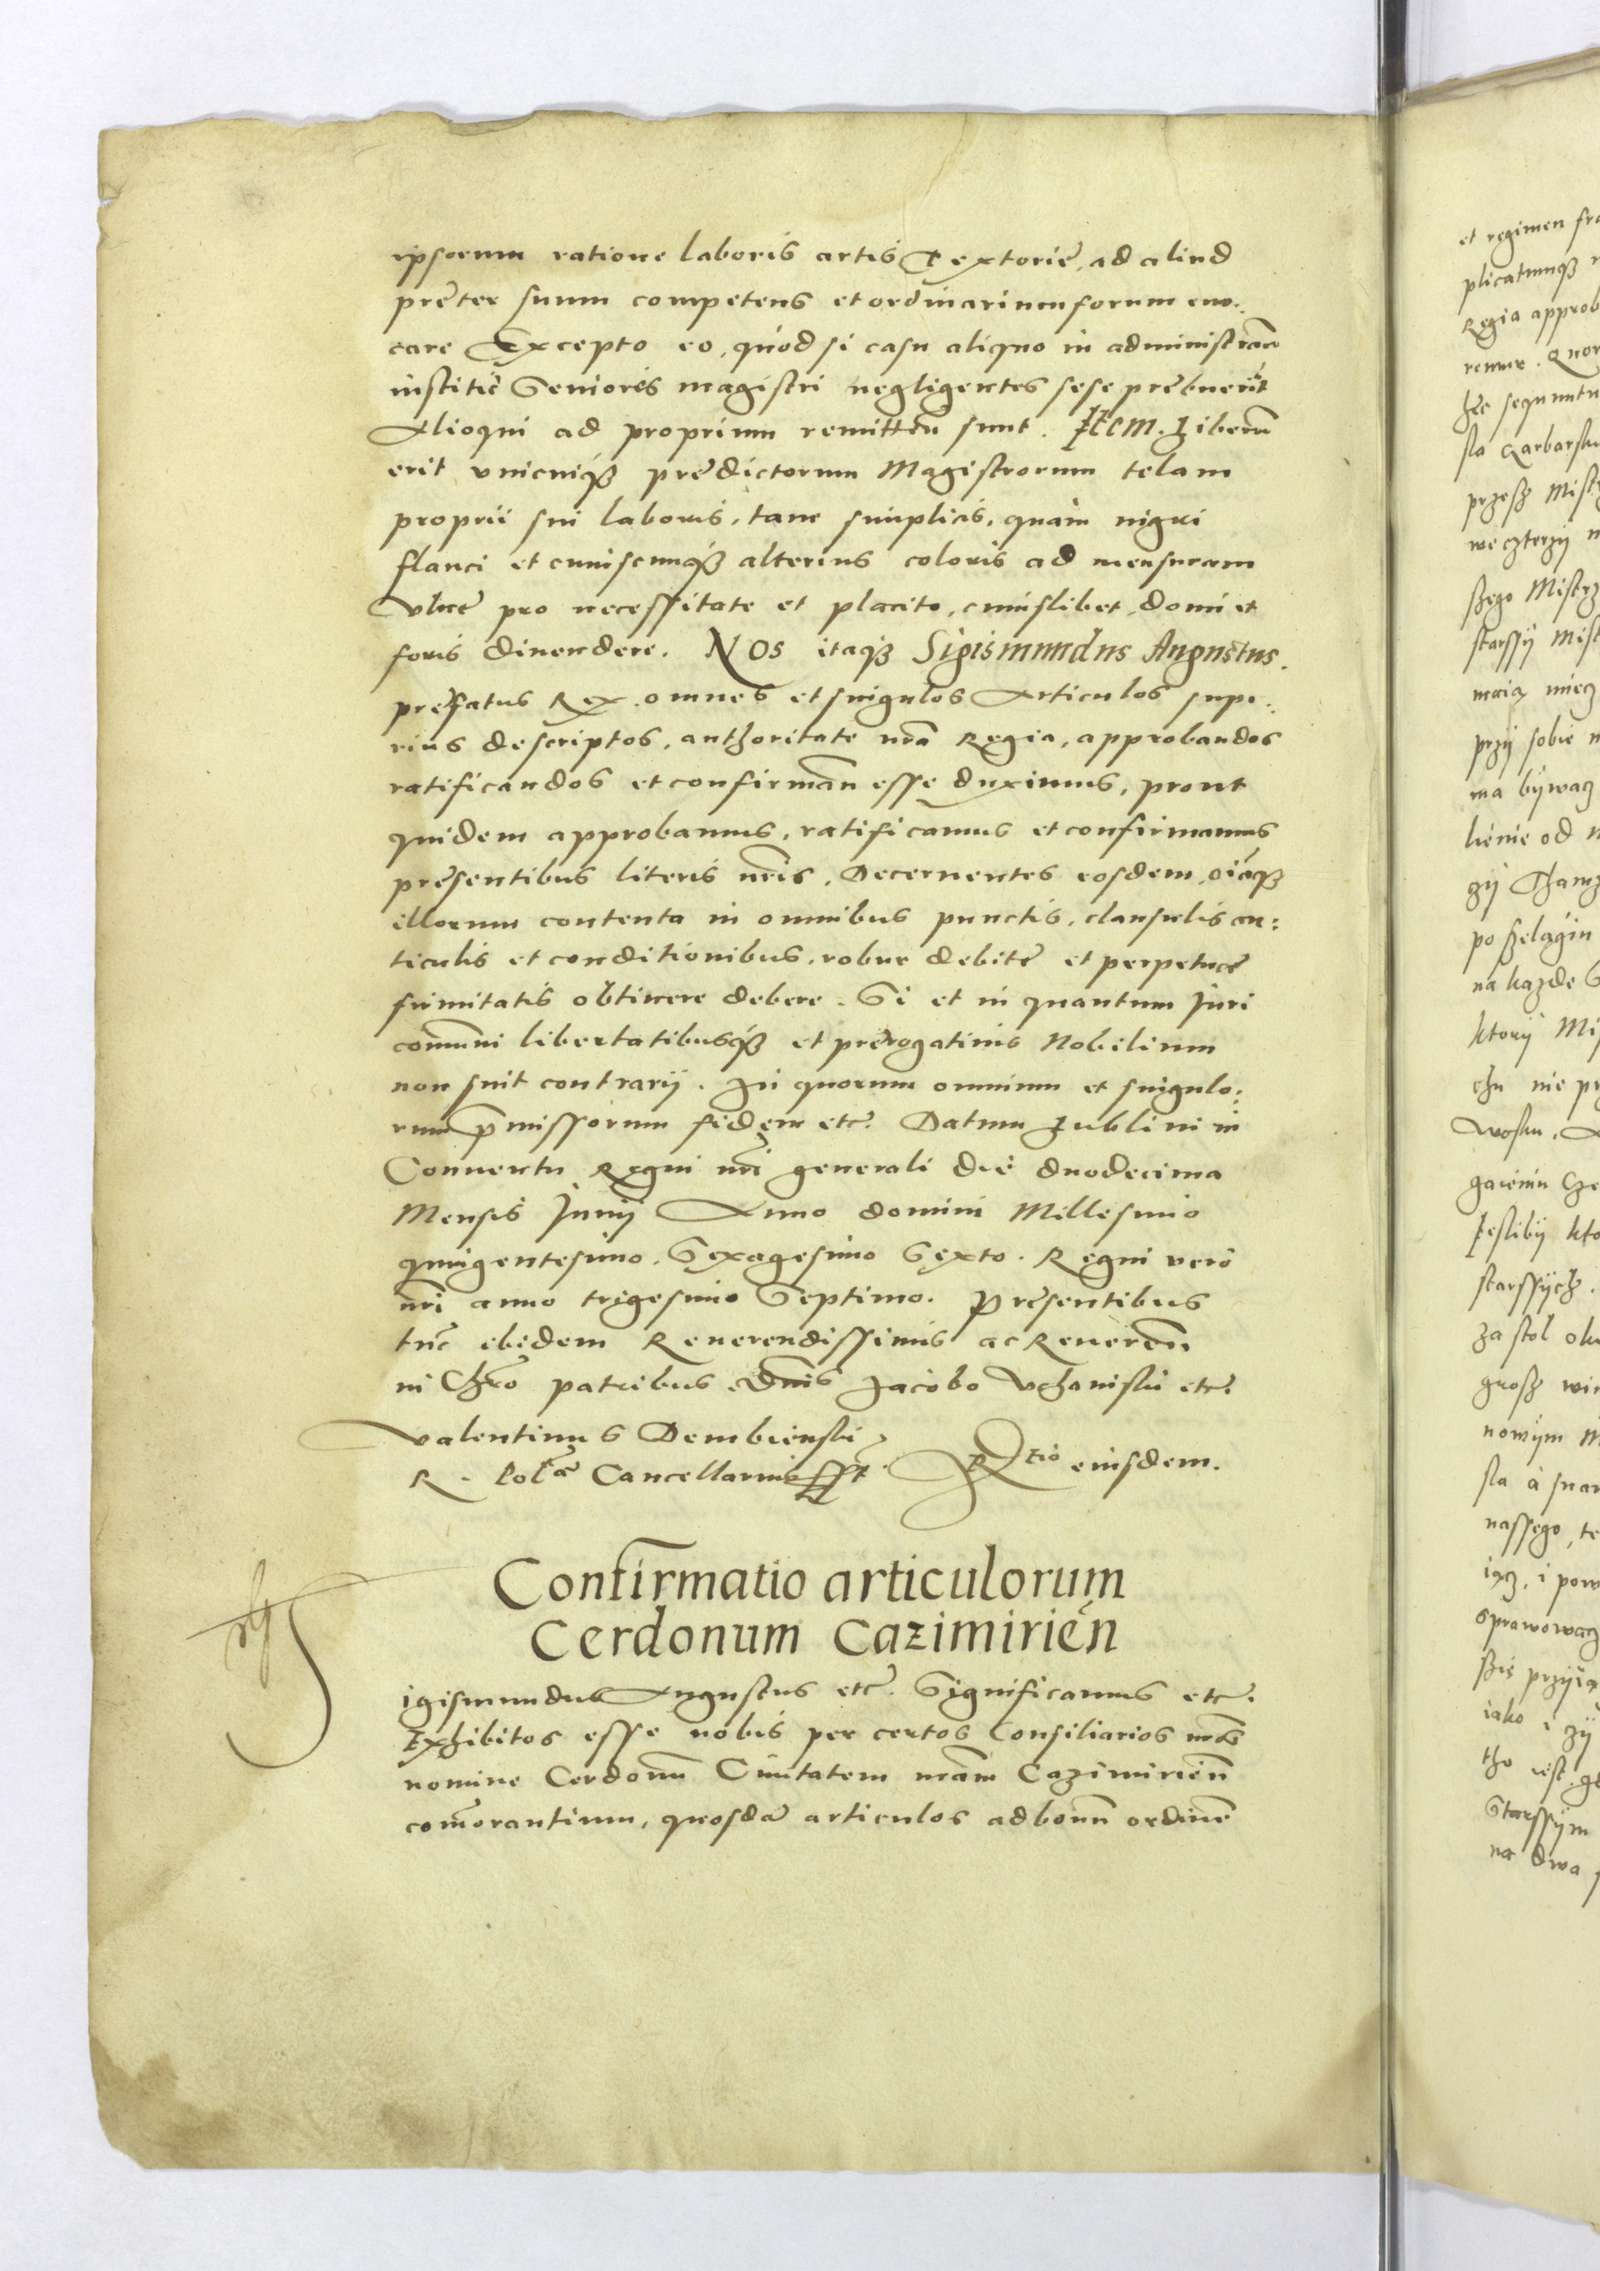 ipsorum ratione laboris artis Textorie, ad aliud
preter suum competens et ordinarium forum euo:
care Excepto eo, quod si casu aliquo in administran̄
iustitie Seniores magistri negligentes sese prebuerīt
Alioqui ad proprium remitten̄ sunt. Item. Liberū
erit vnicuiqȝ predictorum Magistrorum telam
proprii sui laboris, tam simplicis, quàm nigri
flaui et cuiuscunqȝ alterius coloris ad mensuram
vlne pro necessitate et placito, cuiuslibet, domi et
foris diuendere. NOS itaqȝ Sigismundus Augustus.
prefatus Rex omnes et singulos Articulos supe:
rius descriptos, authoritate nrā Regia, approbandos
ratificandos et confirman̄ esse duximus, prout
quidem approbamus, ratificamus et confirmamus
presentibus literis nrīs. Decernentes eosdem, oīaqȝ
illorum contenta in omnibus punctis, clausulis ar:
ticulis et conditionibus, robur debite et perpetue
firmitatis obtinere debere. Si et in quantum Juri
com̄uni libertatibusqȝ et prerogatiuis Nobilium
non sint contrarij. In quorum omnium et singulo:
rum p̄missorum fidem etc. Datum Lublini in
Conuentu Regni nrī generali die duodecima
Mensis Junij Anno domini Millesimo
quingentesimo, Sexagesimo Sexto. Regni verò
nrī anno trigesimo Septimo. Presentibus
tūc ibidem Reuerendissimis ac Reueren̄
in Chrō patribus dnīs Jacobo Vchanski etc.
Valentinus Dembienski
R. Pol̄ Cancellarius sst. Rtio eiusdem.
Confirmatio articulorum
Cerdonum Cazimirien̄
Sigismundus Augustus etc. Significamus etc.
Exhibitos esse nobis per certos Consiliarios nrōs
nomine Cerdonū Ciuitatem nrām Cazimirien̄
com̄orantium, quosdā articulos ad bonū ordinē
et regimen
plicatumqȝ
Regia approb
hec sequuntu
przesz Mist
szego Mistrz
starssy Mist
przy sobie
ma bywacz
lienie od
po szelągu
na kazde
ktory Mi
chu nie pr
Wosku.
starssych.
za stol
grosz
nowym
nassego, te
i pow
sprawowacz
iako i
Starssym
na dwa